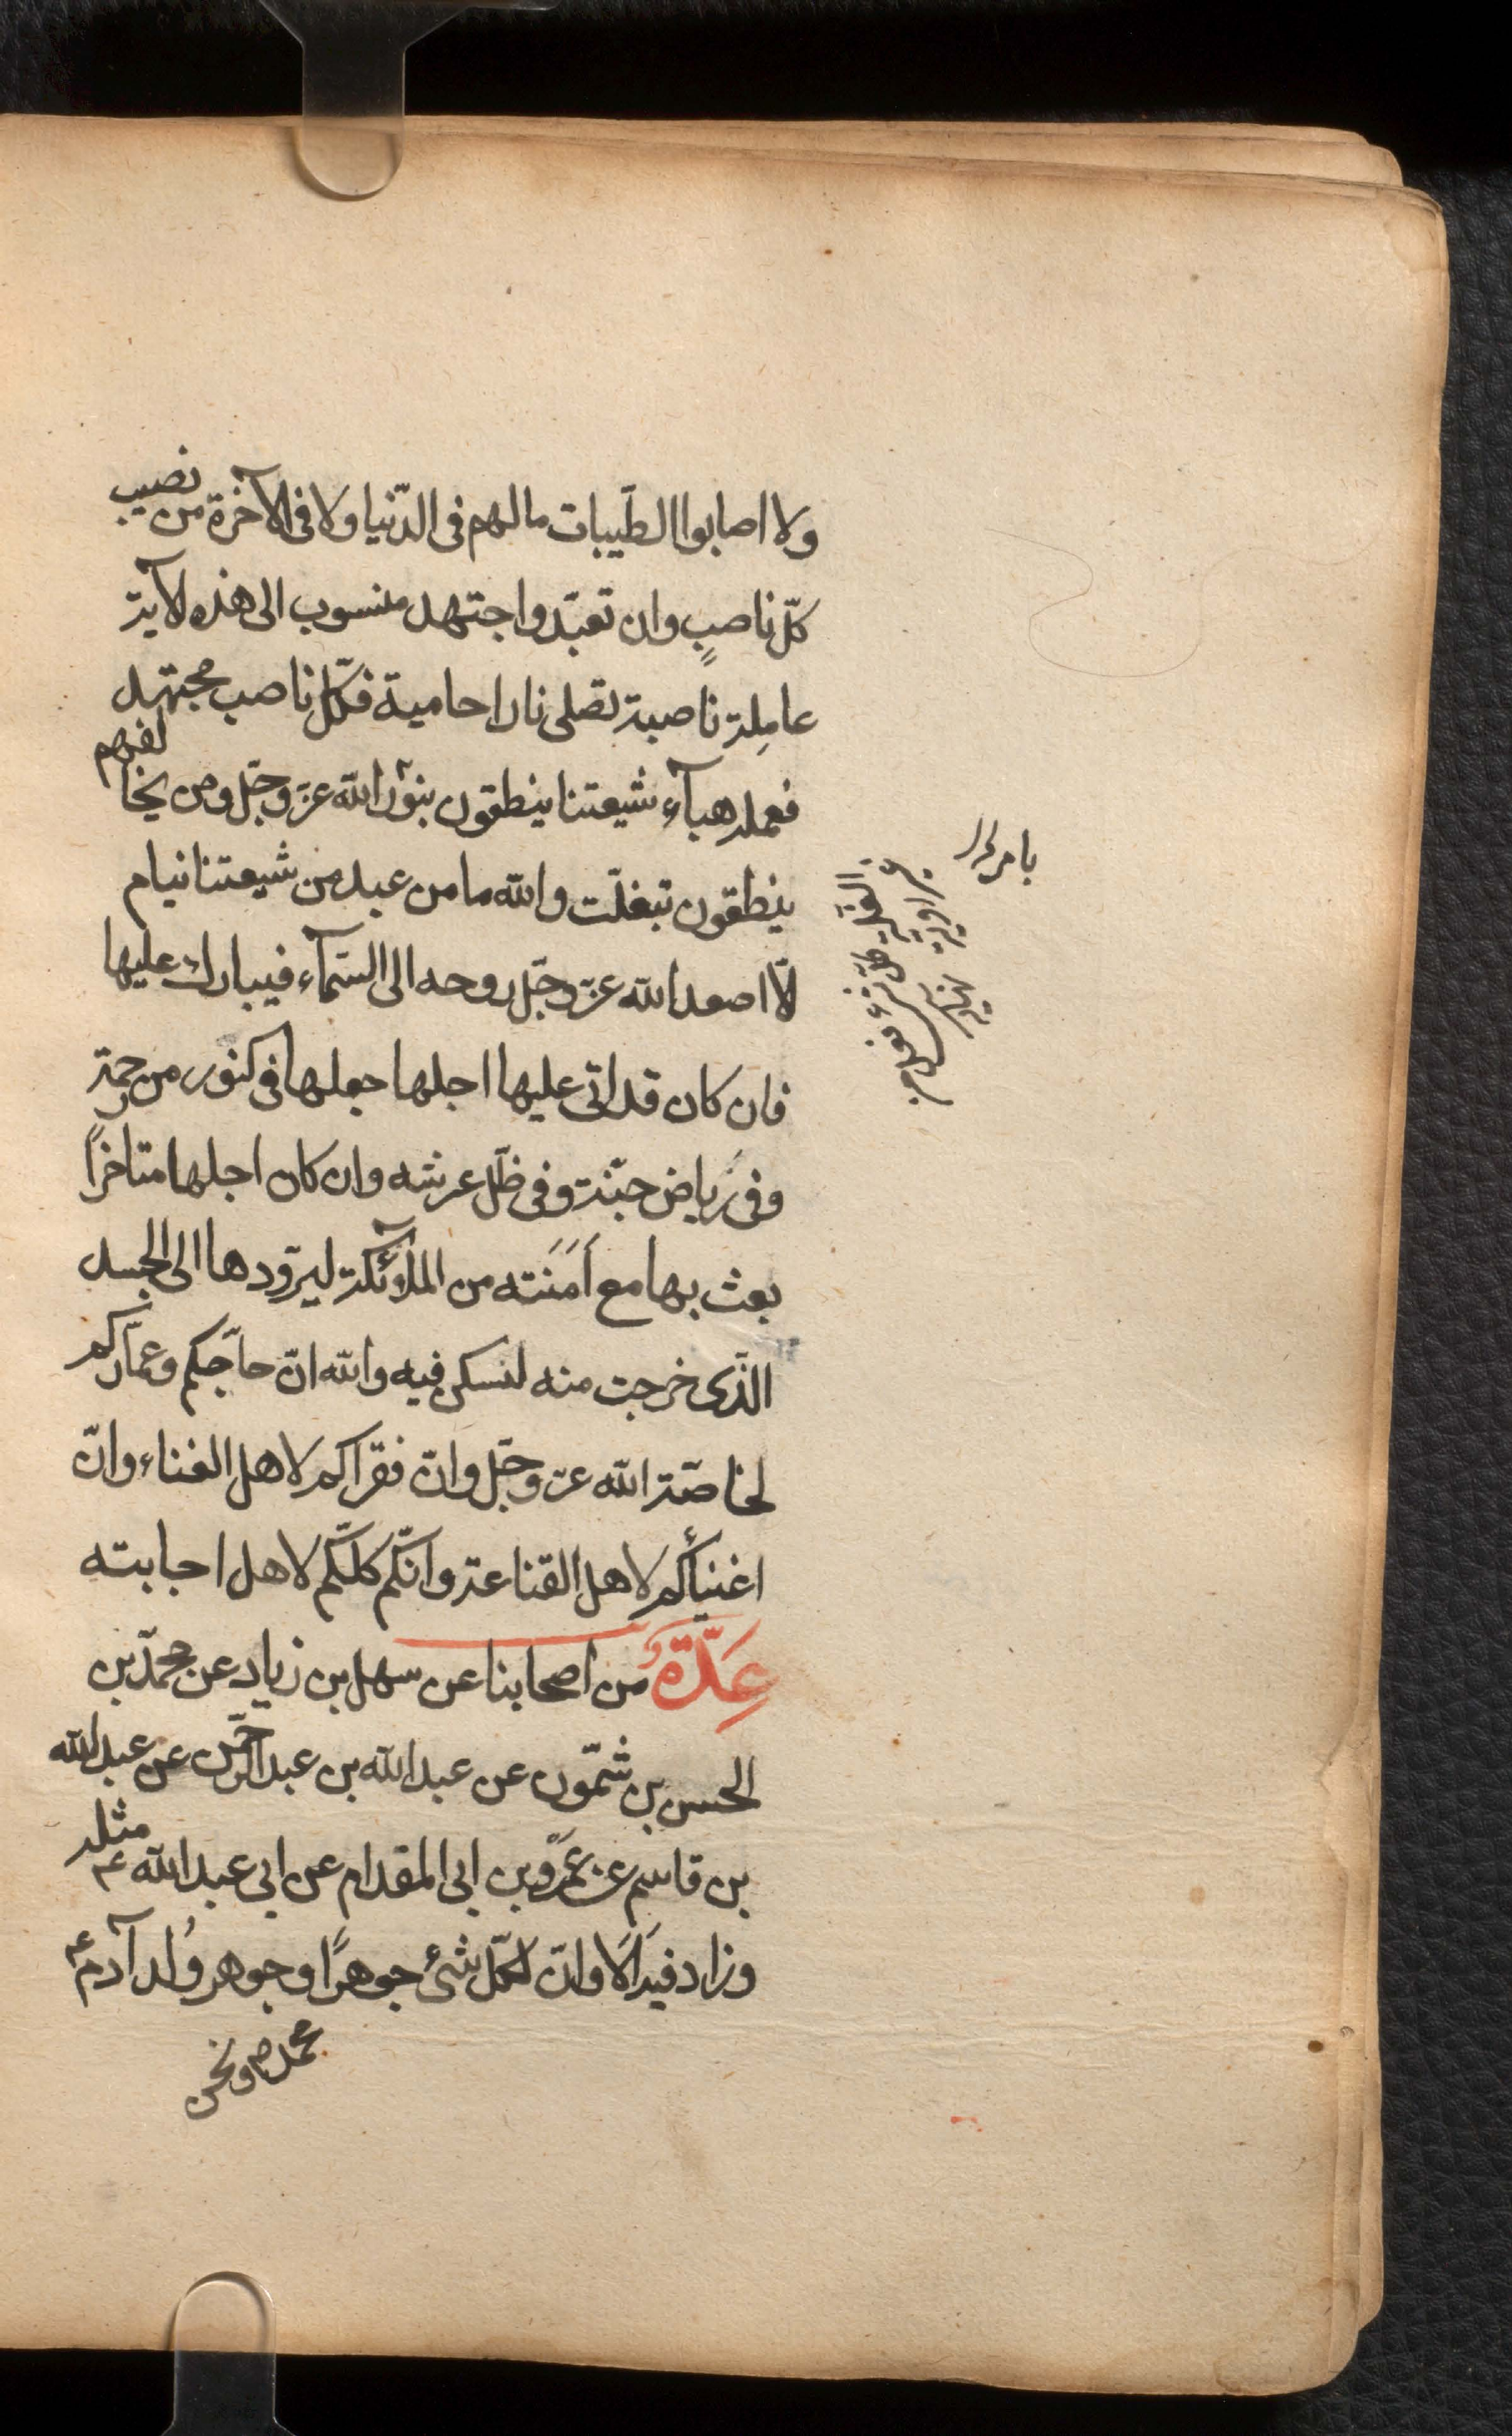 ولا اصابوا الطّيبات مالهم فى الدّنيا ولا فى الآخرة من نصيب
كلّ ناصبٍ وان تعبّد واجتهد منسوب الى هذه الآية
عامِلة ناصبة تصلى نارا حامية فكلّ ناصب مجتهد
فعمله هبآء شيعتنا ينطقون بنور الله عزّ وجلّ ومن يخالفهم
ينطقون بتفلّت والله ما من عبد من شيعتنا نيام
الّا اصعد الله عزّ وجلّ روحه الى السّمآء فيبارك عليها
فان كان قد اتى عليها اجلها جعلها فى كنوز من رحمة
وفى رياض جنّة وفى ظلّ عرشه وان كان اجلها متاخراً
بعث بها مع اَمَنَته من الملآئكة ليردّوها الى الجسد
الّذى خرجت منه لتسكن فيه والله انّ حاجّكم وعمّاركم
لخاصّة الله عزّ وجلّ وانّ فقراكم لاهل الغناء وانّ
اغنيآئكم لاهل القناعة وانّكم كلّكم لاهل اجابته
عِدّةٌ من اصحابنا عن سهل بن زياد عن محمّد بن
الحسن بن شمّون عن عبد الله بن عبد الرّحمن عن عبد الله
بن قاسم عن عَمرو بن ابى المقدام عن ابى عبد الله ع مثله
وزاد فيه اَلَا وانّ لكلّ شئ جوهرًا وجوهر وُلد آدم ع
محمد ص ونحن